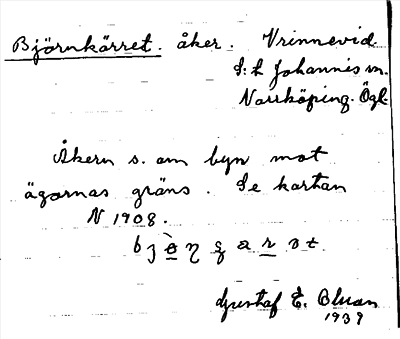 Björnkärret. åker. Vrinnevid
S:t Johannis sn.
Norrköping. Ögl.
Åkern s. om byn mot
ägornas gräns. Se kartan
N 1908.
Gustaf E. Bluan
1939